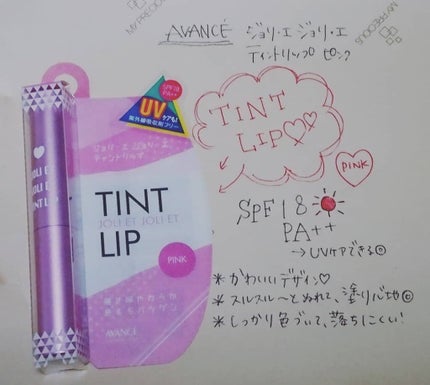 AVANCÉ ジョリ・エ ジョリ・エ
ティントリップ ピンク
TINT
LIP
PINK
SPF18
PA++
→UVケアできる
*かわいいデザイン♡
*スルスル〜とぬれて、塗り心地
*しっかり色づいて、落ちにくい!
SPF18
PA++
UV
ケアも!
紫外線吸収剤フリー
ジョリ・エ ジョリ・エ
ティントリップ
TINT
JOLI ET JOLI ET
LIP
PINK
AVANCÉ
JOLI ET
JOLI ET
TINT LIP